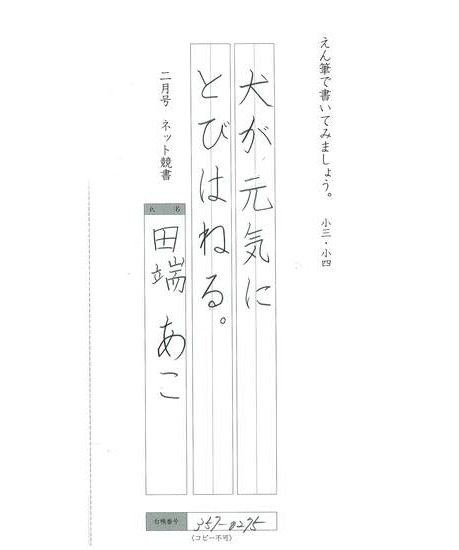 えん筆で書いてみましょう。 小三・小四
犬が元気に
とびはねる。
二月号 ネット競書
氏 名
田端 あこ
台帳番号
357-0275
(コピー不可)